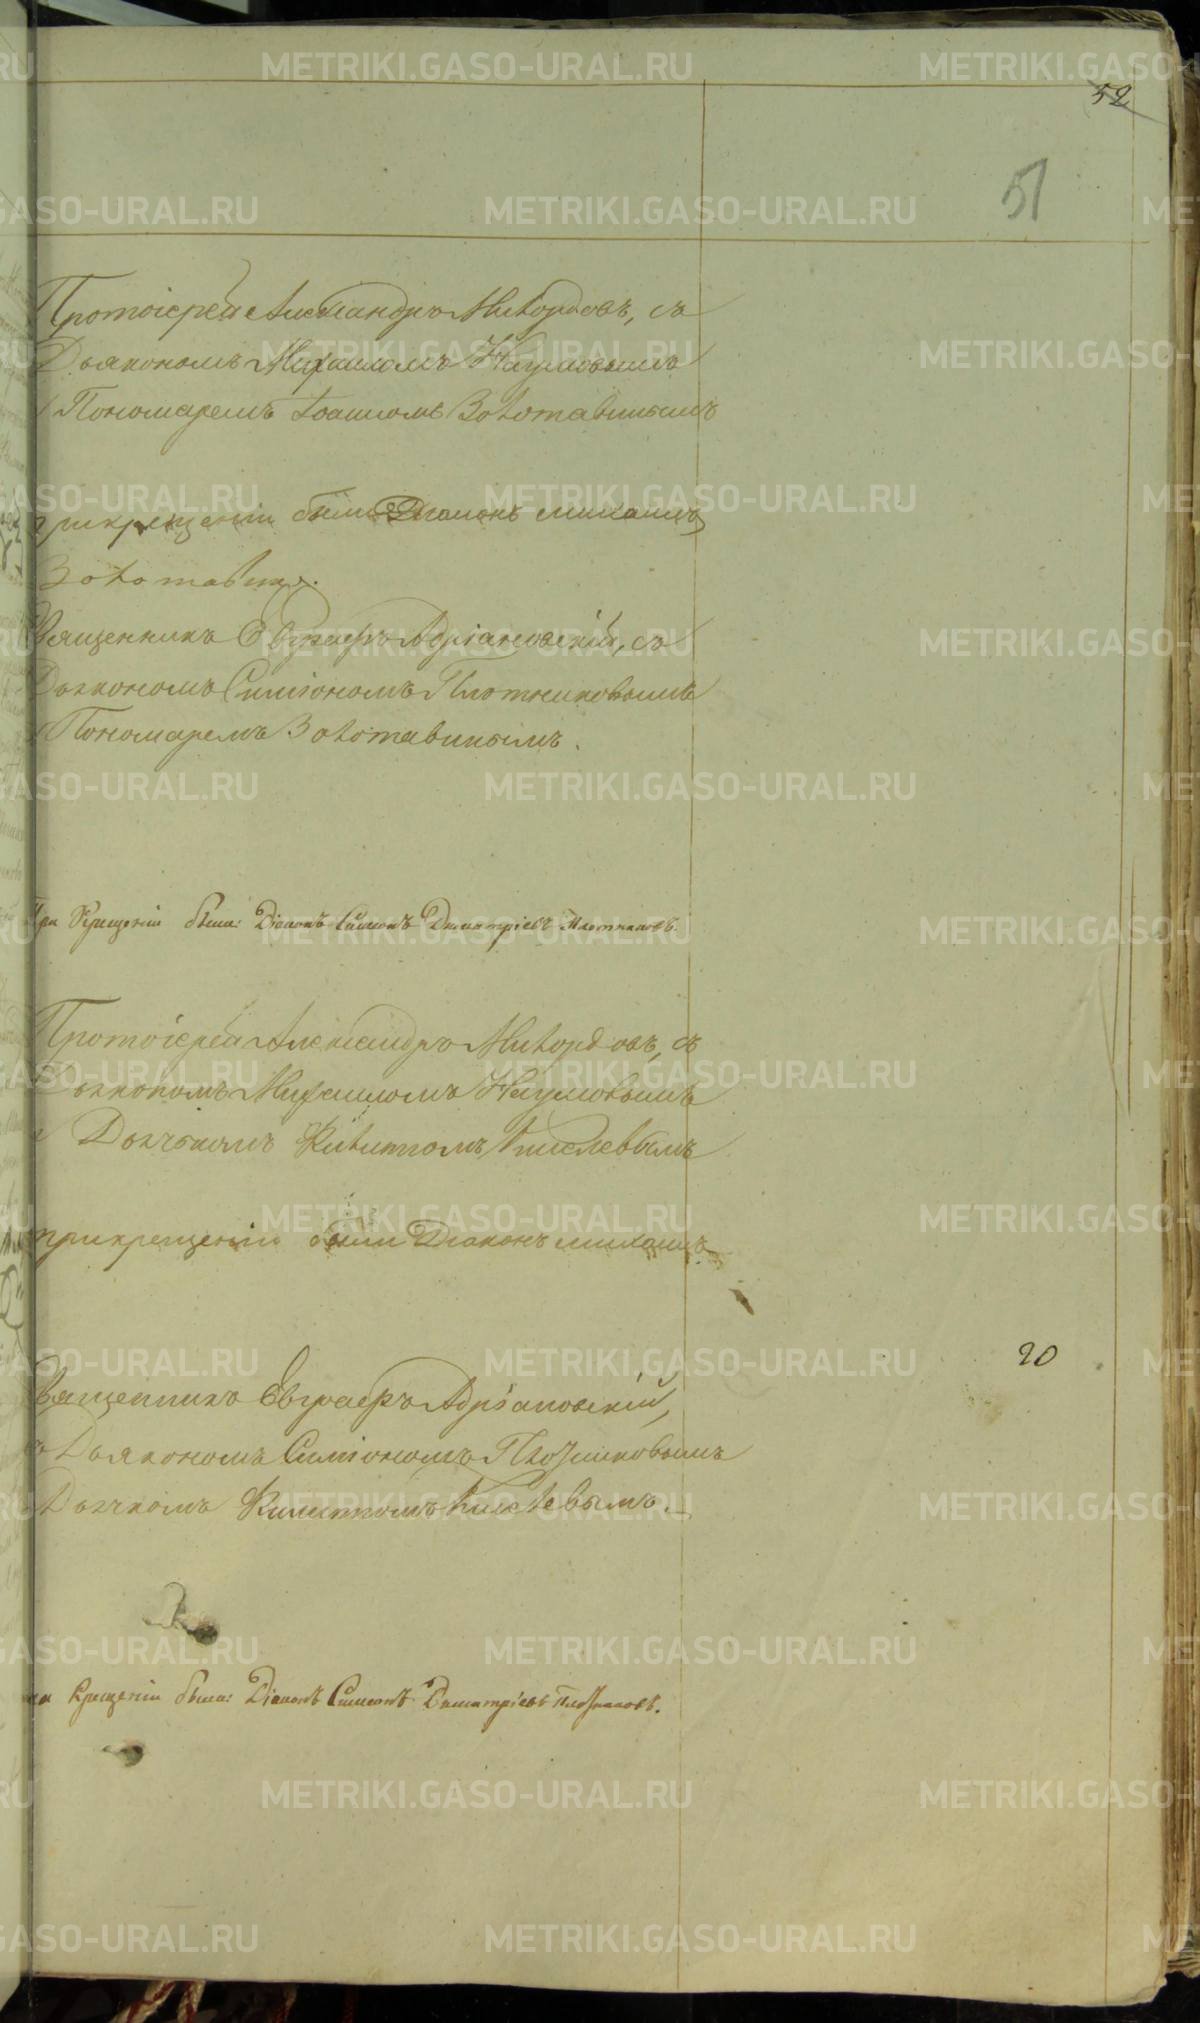 52
51
Протоіерей Александръ Милордовъ, съ
Дьякономъ Михаиломъ Наумовымъ
Пономаремъ Іоанномъ Золотавинымъ
прикрещеніи были Диаконъ михаилъ
Золотавинъ.
Священникъ Евграфъ Адріановскій, съ
Дьякономъ Симіономъ Плотниковымъ
Пономаремъ Золотавинымъ.
При Крещеніи были: Діаконъ Симеонъ Димитріевъ Плотниковъ.
Протоіерей Александръ Милордовъ, съ
Дьякономъ Михаиломъ Наумовымъ
Дьячкомъ Киселевымъ
прикрещеніи были Диаконъ михаилъ
20
Священникъ Евграфъ Адріановскій,
съ Дьякономъ Симіономъ Плотниковымъ
Дьячкомъ Киселевымъ.
при Крещеніи были: Діаконъ Симеонъ Димитріевъ Плотниковъ.
METRIKI.GASO-URAL.RU